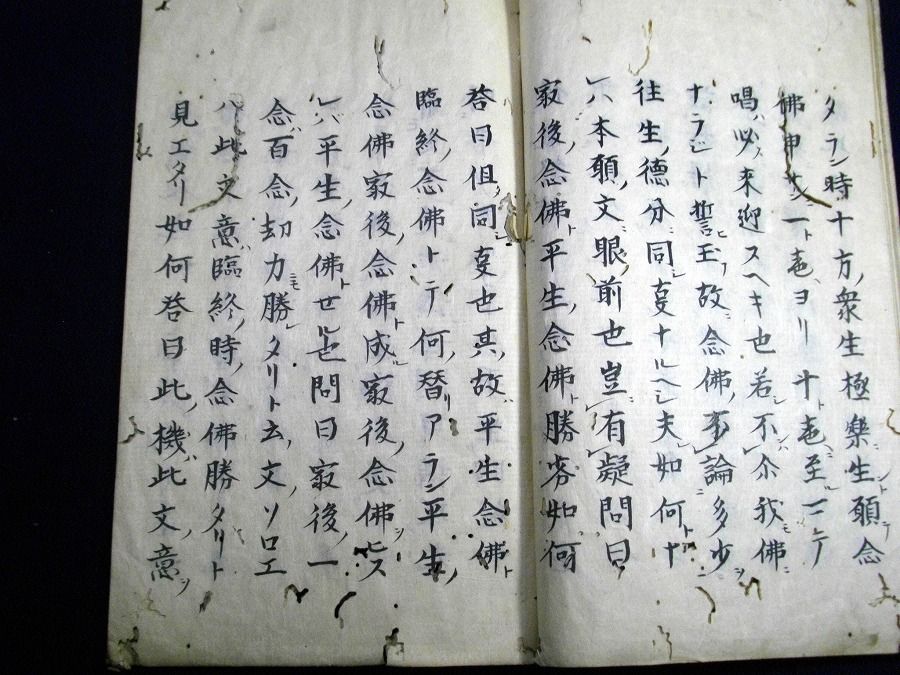 タラン時十方ノ衆生極樂ニ生ント願テ念
佛申サン一トヨリ十ト至ニテ
唱ハ必ス來迎スヘキ也若シ不ンハ尒我モ佛ニ
ナラシト誓ヒ玉フ故ニ念佛ハ不論多少ヲ
往生ノ德分同シ亊ナルヘシ夫如何トナ
レハ本願ノ文眼前也豈ニ有ン疑問曰
㝡後ノ念佛ト平生ノ念佛ト勝劣如何
答曰但同亊也其ノ故ハ平生念佛ト
臨終ノ念佛トテ何ノ替リアラン平生ノ
念佛㝡後ノ念佛ト成ル㝡後ノ念佛ヲヒス
レハ平生ノ念佛トセル也問曰㝡後ノ一
念ハ百念ノ劫力ニモ勝レタリト云ノ文ソロエ
ハ此ノ文ノ意ハ臨終ノ時ノ念佛ハ勝タリト
見エタリ如何答曰此ノ機ハ此文ノ意ヲ